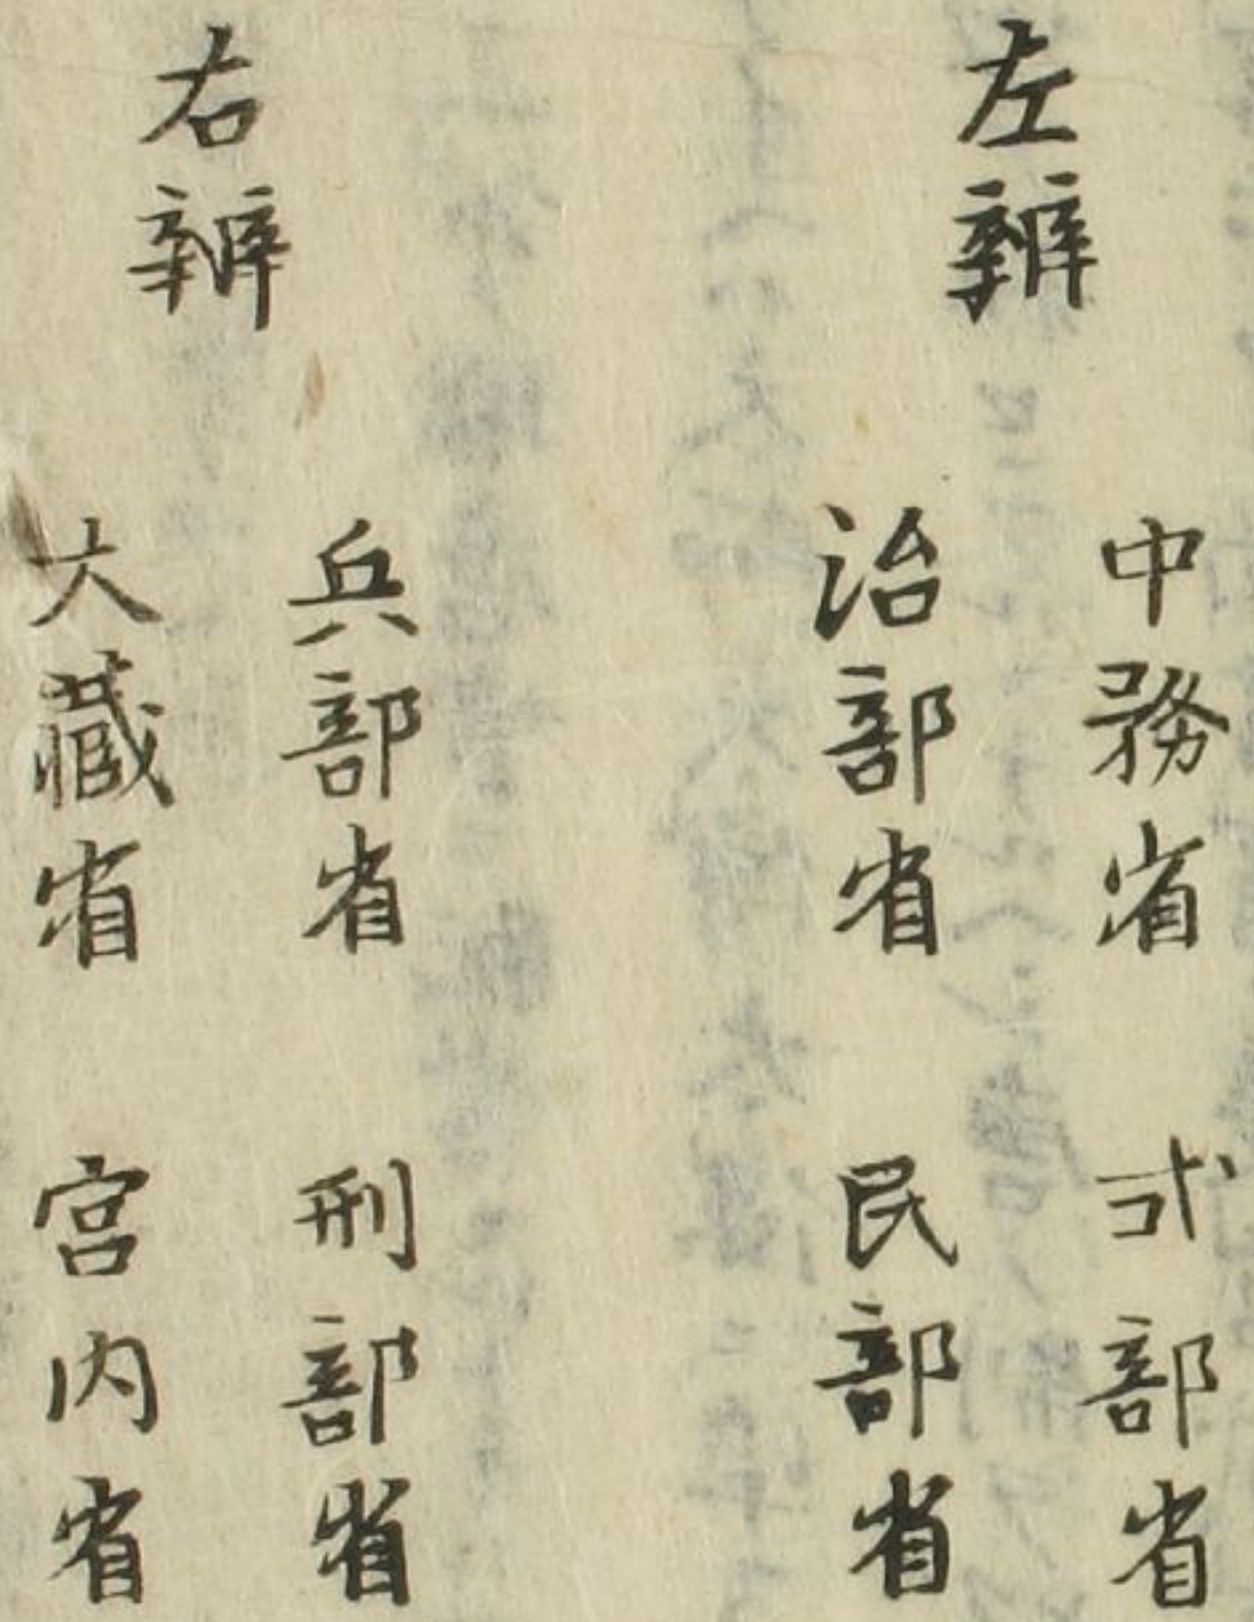 左辨
中務省
式部省
治部省
民部省
右辨
兵部省
刑部省
大藏省
宮内省